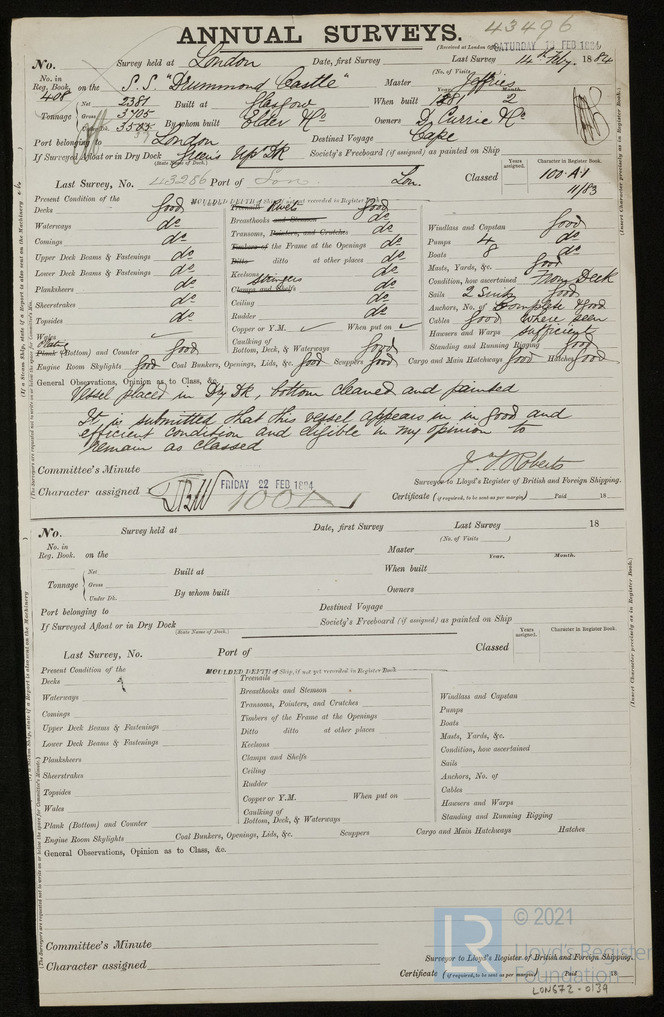 43496
ANNUAL SURVEYS.
(Received at London Office SATURDAY 16 FEB 1884
No. Survey held at London Date, first Survey Last Survey 14th Feby. 1884
(No. of Visits )
No. in Reg. Book. 408 on the S.S. "Drummond Castle" Master Jeffries
Year. Month.
Tonnage Net 2381 Built at Glasgow When built 1881 2
Gross 3705
Under Dk. By whom built Elder & Co Owners D. Currie & Co
Port belonging to London Destined Voyage Cape
If Surveyed Afloat or in Dry Dock Green's Up DK Society's Freeboard (if assigned) as painted on Ship
(State Name of Dock.)
Last Survey, No. 43286 Port of Lon Lon. Classed
Years assigned. Character in Register Book.
100 A1
11/83
Present Condition of the MOULDED DEPTH of Ship, if not yet recorded in Register Book
Decks good
Waterways do
Comings do
Upper Deck Beams & Fastenings do
Lower Deck Beams & Fastenings do
Planksheers do
Sheerstrakes do
Topsides do
Wales
Plank (Bottom) and Counter good
Treenails Rivets good
Breasthooks and Stemson do
Transoms, Pointers, and Crutches do
Timbers of the Frame at the Openings do
Ditto ditto at other places do
Keelsons do
Clamps and Shelfs Stringers do
Ceiling do
Rudder do
Copper or Y.M. When put on
Caulking of Bottom, Deck, & Waterways good
Windlass and Capstan good
Pumps 4 do
Boats 8 do
Masts, Yards, &c. good
Condition, how ascertained From Deck
Sails good
Anchors, No. of Complete good
Cables good where seen
Hawsers and Warps sufficient
Standing and Running Rigging good
Engine Room Skylights good Coal Bunkers, Openings, Lids, &c. good Scuppers good Cargo and Main Hatchways good Hatches good
General Observations, Opinion as to Class, &c.
Vessel placed in Dry Dk, bottom cleaned and painted
It is submitted that this vessel appears in in good and
efficient condition and eligible in my opinion to
remain as classed
Committee's Minute J. T. Roberts
Surveyor to Lloyd's Register of British and Foreign Shipping.
Character assigned FRIDAY 22 FEB 1884 100A
Certificate (if required, to be sent as per margin) Paid 18
No. Survey held at Date, first Survey Last Survey 18
(No. of Visits )
No. in Reg. Book. on the Master
Year. Month.
Tonnage Net Built at When built
Gross
Under Dk. By whom built Owners
Port belonging to Destined Voyage
If Surveyed Afloat or in Dry Dock Society's Freeboard (if assigned) as painted on Ship
(State Name of Dock.)
Years assigned. Character in Register Book.
Last Survey, No. Port of Classed
Present Condition of the MOULDED DEPTH of Ship, if not yet recorded in Register Book
Decks
Waterways
Comings
Upper Deck Beams & Fastenings
Lower Deck Beams & Fastenings
Planksheers
Sheerstrakes
Topsides
Wales
Plank (Bottom) and Counter
Treenails
Breasthooks and Stemson
Transoms, Pointers, and Crutches
Timbers of the Frame at the Openings
Ditto ditto at other places
Keelsons
Clamps and Shelfs
Ceiling
Rudder
Copper or Y.M. When put on
Caulking of Bottoms, Deck, & Waterways
Windlass and Capstan
Pumps
Boats
Masts, Yards, &c.
Condition, how ascertained
Sails
Anchors, No. of
Cables
Hawsers and Warps
Standing and Running Rigging
Engine Room Skylights Coal Bunkers, Openings, Lids, &c. Scuppers Cargo and Main Hatchways Hatches
General Observations, Opinion as to Class, &c.
Committee's Minute
Surveyor to Lloyd's Register of British and Foreign Shipping.
Character assigned
Certificate (if required, to be sent as per margin) Paid 18
LR © 2021
Lloyd's Register
Foundation
LON672-0139
(Insert Character precisely as in Register Book.)
(Insert Character precisely as in Register Book.)